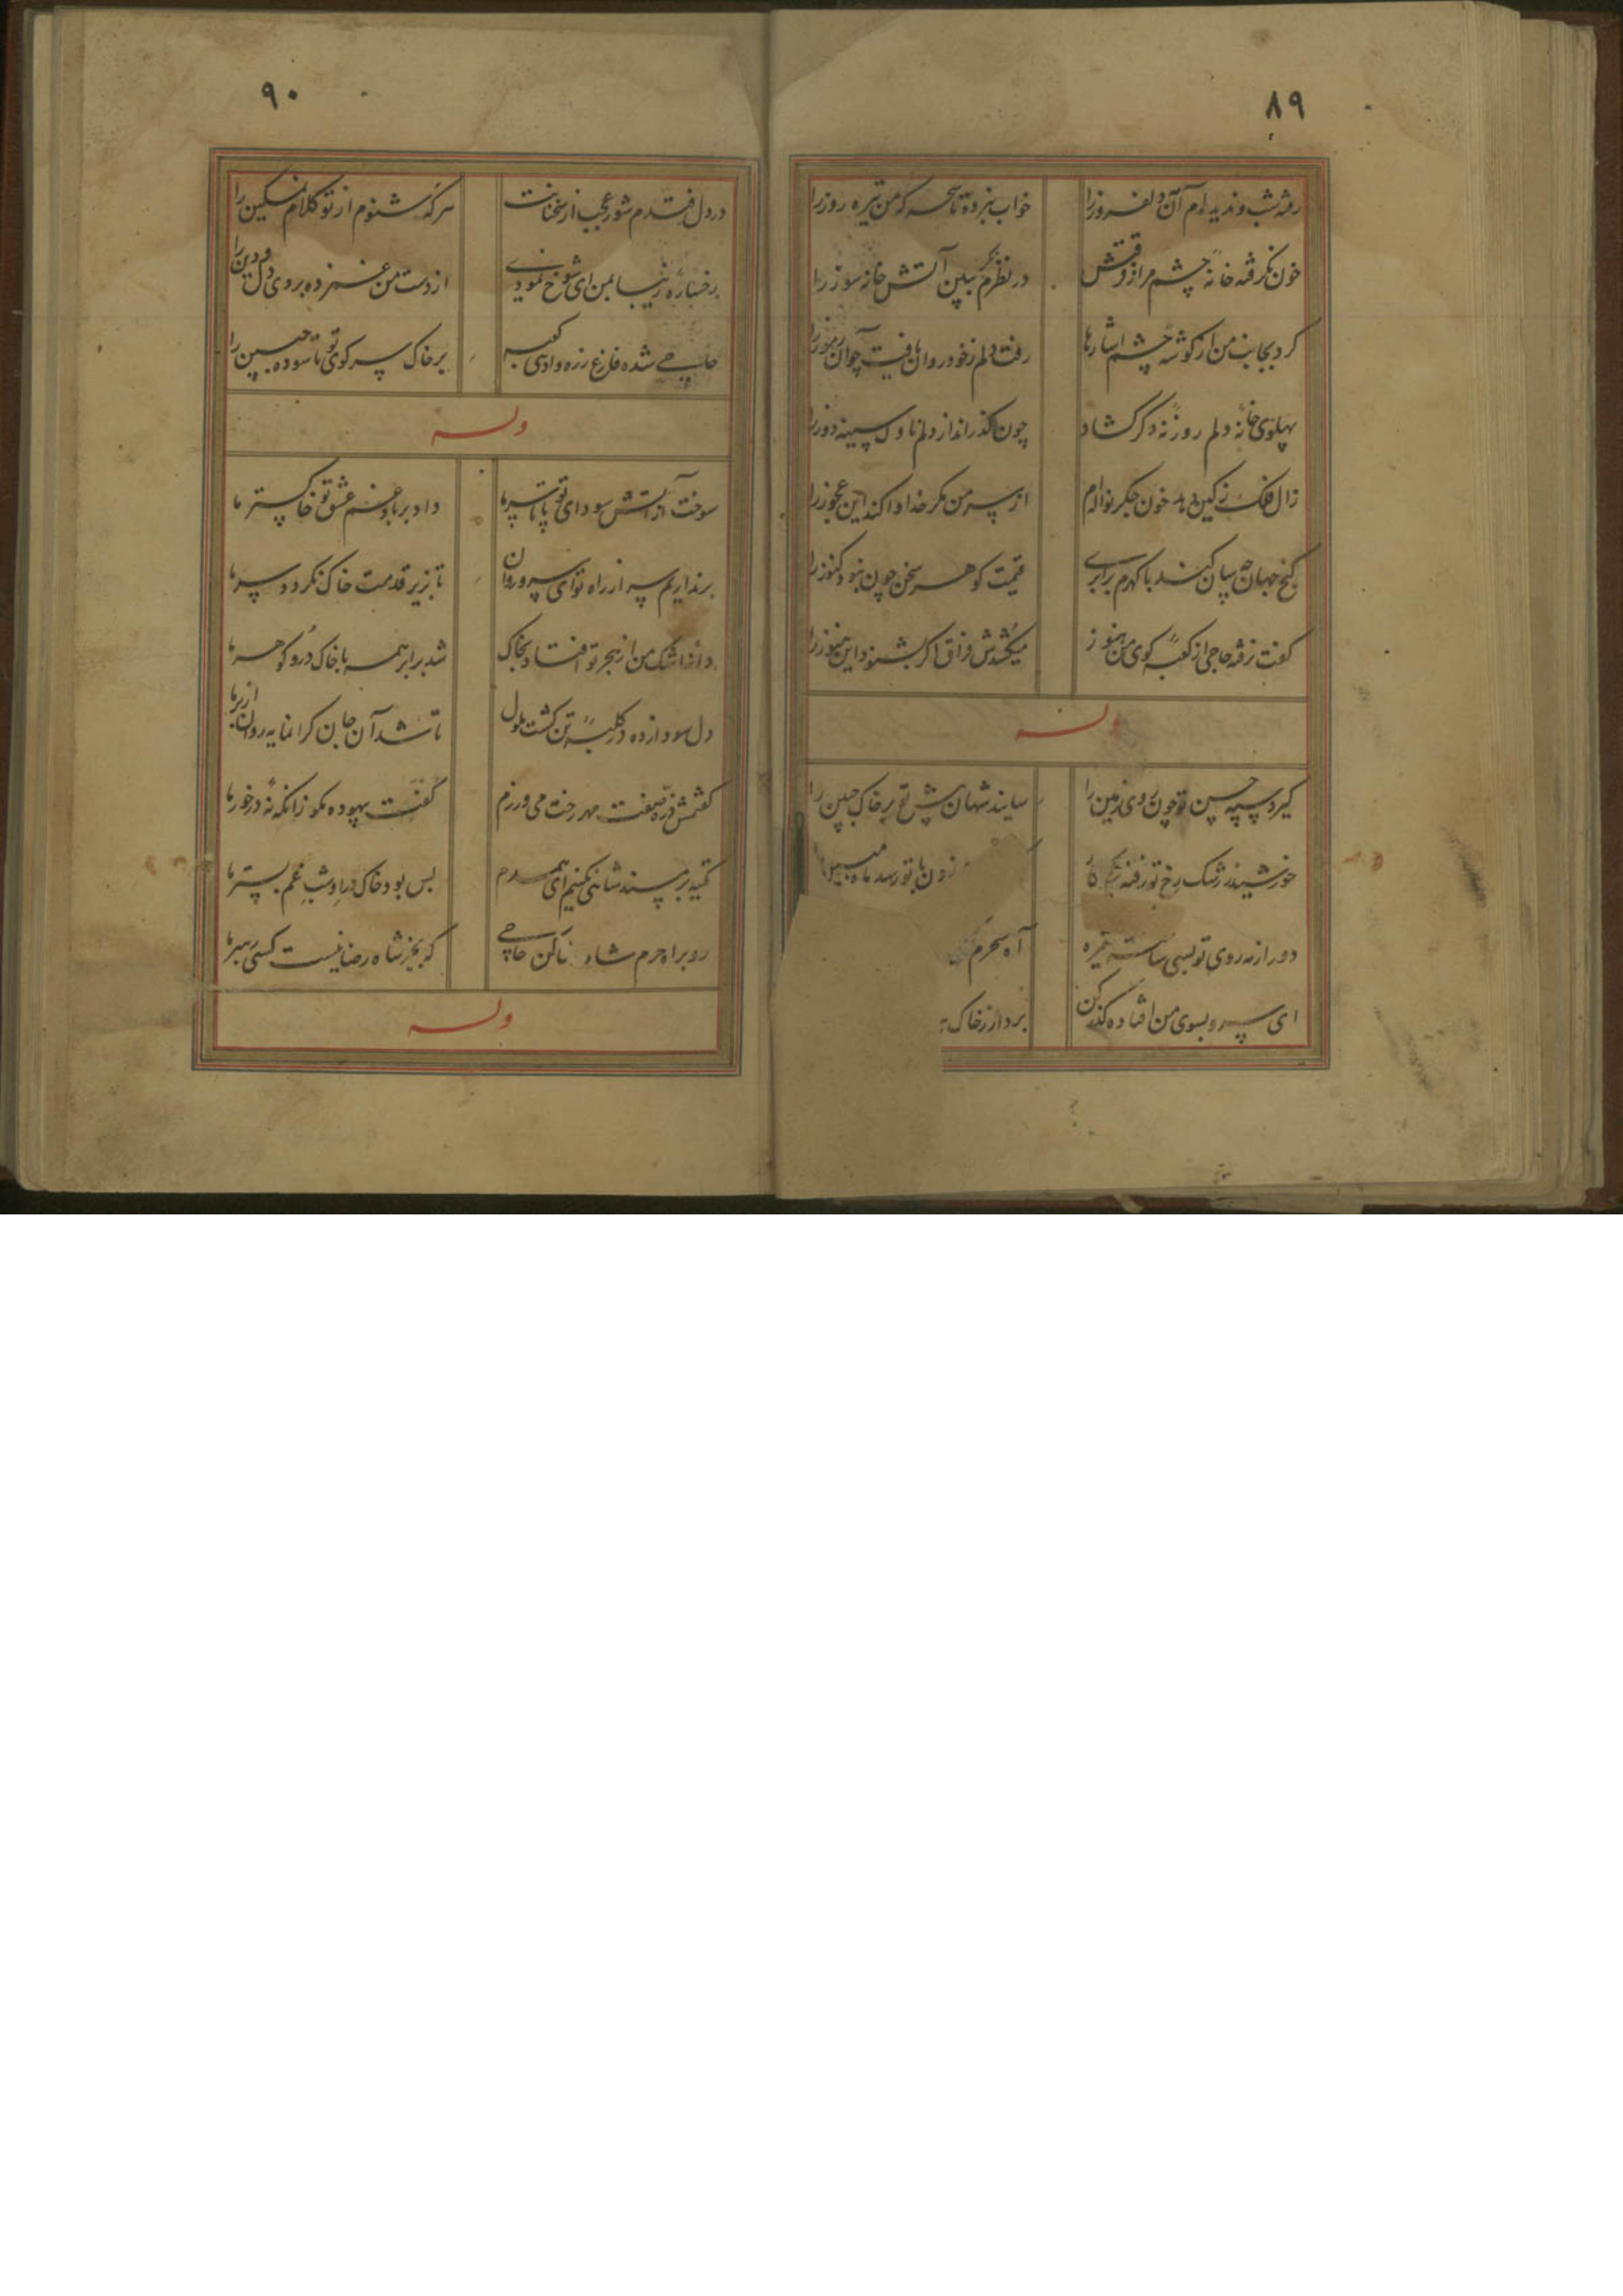 ۸۹
رفته شب و ندیده‌ام آن دلفروز را
خواب نبرده تا سحر که من تیره روز را
خون نگرفته خانهٔ چشم مرا ز فرقتش
در نظرم ببین آتش خانه سوز را
کرد بجانب من از گوشهٔ چشم اشارها
رفت دلم ز خود روان یافت چو آن رموز را
پهلوی خانهٔ دلم روزنهٔ دگر گشاد
چون گذراند از دلم ناوک سینه دوز را
زال فلک ز کین دهد خون جگر نواله‌ام
از سر من مگر خدا وا کند این عجوز را
گنج جهان چه سان کند با گهرم برابری
قیمت گوهر سخن چون نبود کنوز را
گفت نرفته حاجی از کعبهٔ کوی من هنوز
میکشدش فراق اگر بشنود این هنوز را
وله
گیرد سپه حسن تو چون روی زمین را
سایند شهان پیش تو بر خاک جبین را
خورشید ز رشک رخ تو رفته
دور از مه روی تو بسی شب تیره
آه سحرم
ای سرو بسوی من افتاده گذر کن
بردار ز خاک
۹۰
در دل فتدم شور عجب از سخنانت
هر گه شنوم از تو کلام نمکین را
رخساره زیبا بمن ای شوخ نمودی
از دست من غمزده بردی دل و دین را
حاجی شده فارغ ز ره وادی کعبه
بر خاک سر کوی تو تا سوده جبین را
وله
سوخت از آتش سودای تو پا تا سر ما
داد بر باد غم عشق تو خاکستر ما
برنداریم سر از راه تو ای سرو روان
تا بزیر قدمت خاک نگردد سر ما
دانهٔ اشک من از هجر تو افتاد بخاک
شد برابر همه با خاک در و گوهر ما
دل سودازده در کلبهٔ تن گشت ملول
تا شد آن جان گرانمایه روان از بر ما
گفتمش ذره صفت مهر رخت می ورزم
گفت بیهوده مگو زانکه نهٔ در خور ما
تکیه بر مسند شاهی نکنیم ای همدم
بس بود خاک در او شب غم بستر ما
رو براه حرم شاه کن حاجی
که بجز شاه رضا نیست کسی رهبر ما
وله